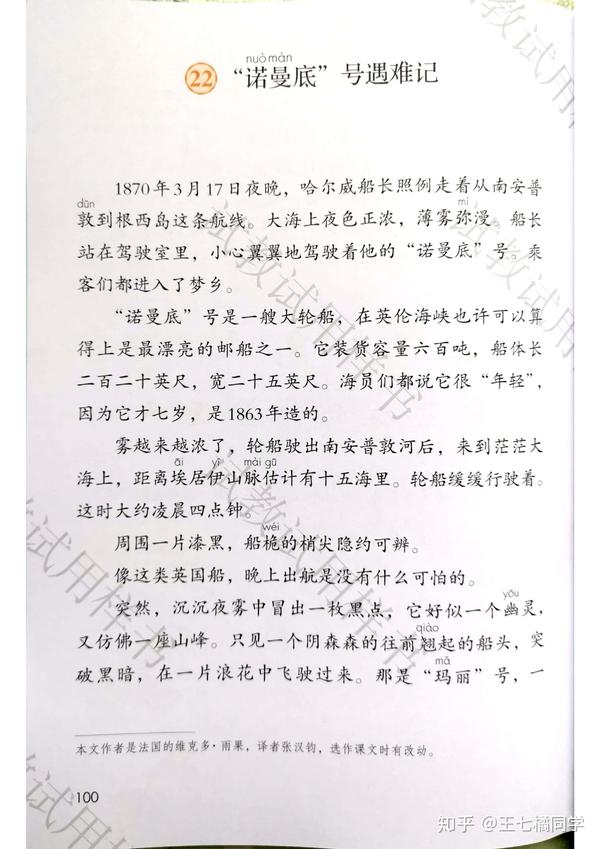 nuò màn
22 “诺曼底”号遇难记
1870年3月17日夜晚，哈尔威船长照例走着从南安普
dūn mí
敦到根西岛这条航线。大海上夜色正浓，薄雾弥漫。船长
站在驾驶室里，小心翼翼地驾驶着他的“诺曼底”号。乘
客们都进入了梦乡。
“诺曼底”号是一艘大轮船，在英伦海峡也许可以算
得上是最漂亮的邮船之一。它装货容量六百吨，船体长
二百二十英尺，宽二十五英尺。海员们都说它很“年轻”，
因为它才七岁，是1863年造的。
雾越来越浓了，轮船驶出南安普敦河后，来到茫茫大
āi yī mài gū
海上，距离埃居伊山脉估计有十五海里。轮船缓缓行驶着。
这时大约凌晨四点钟。
wéi
周围一片漆黑，船桅的梢尖隐约可辨。
像这类英国船，晚上出航是没有什么可怕的。
yōu
突然，沉沉夜雾中冒出一枚黑点，它好似一个幽灵，
qiào
又仿佛一座山峰。只见一个阴森森的往前翘起的船头，突
mǎ
破黑暗，在一片浪花中飞驶过来。那是“玛丽”号，一
本文作者是法国的维克多·雨果，译者张汉钧，选作课文时有改动。
100
试教试用样书
试教试用样书
试教试用样书
试教试用样书
知乎 @王七橘同学